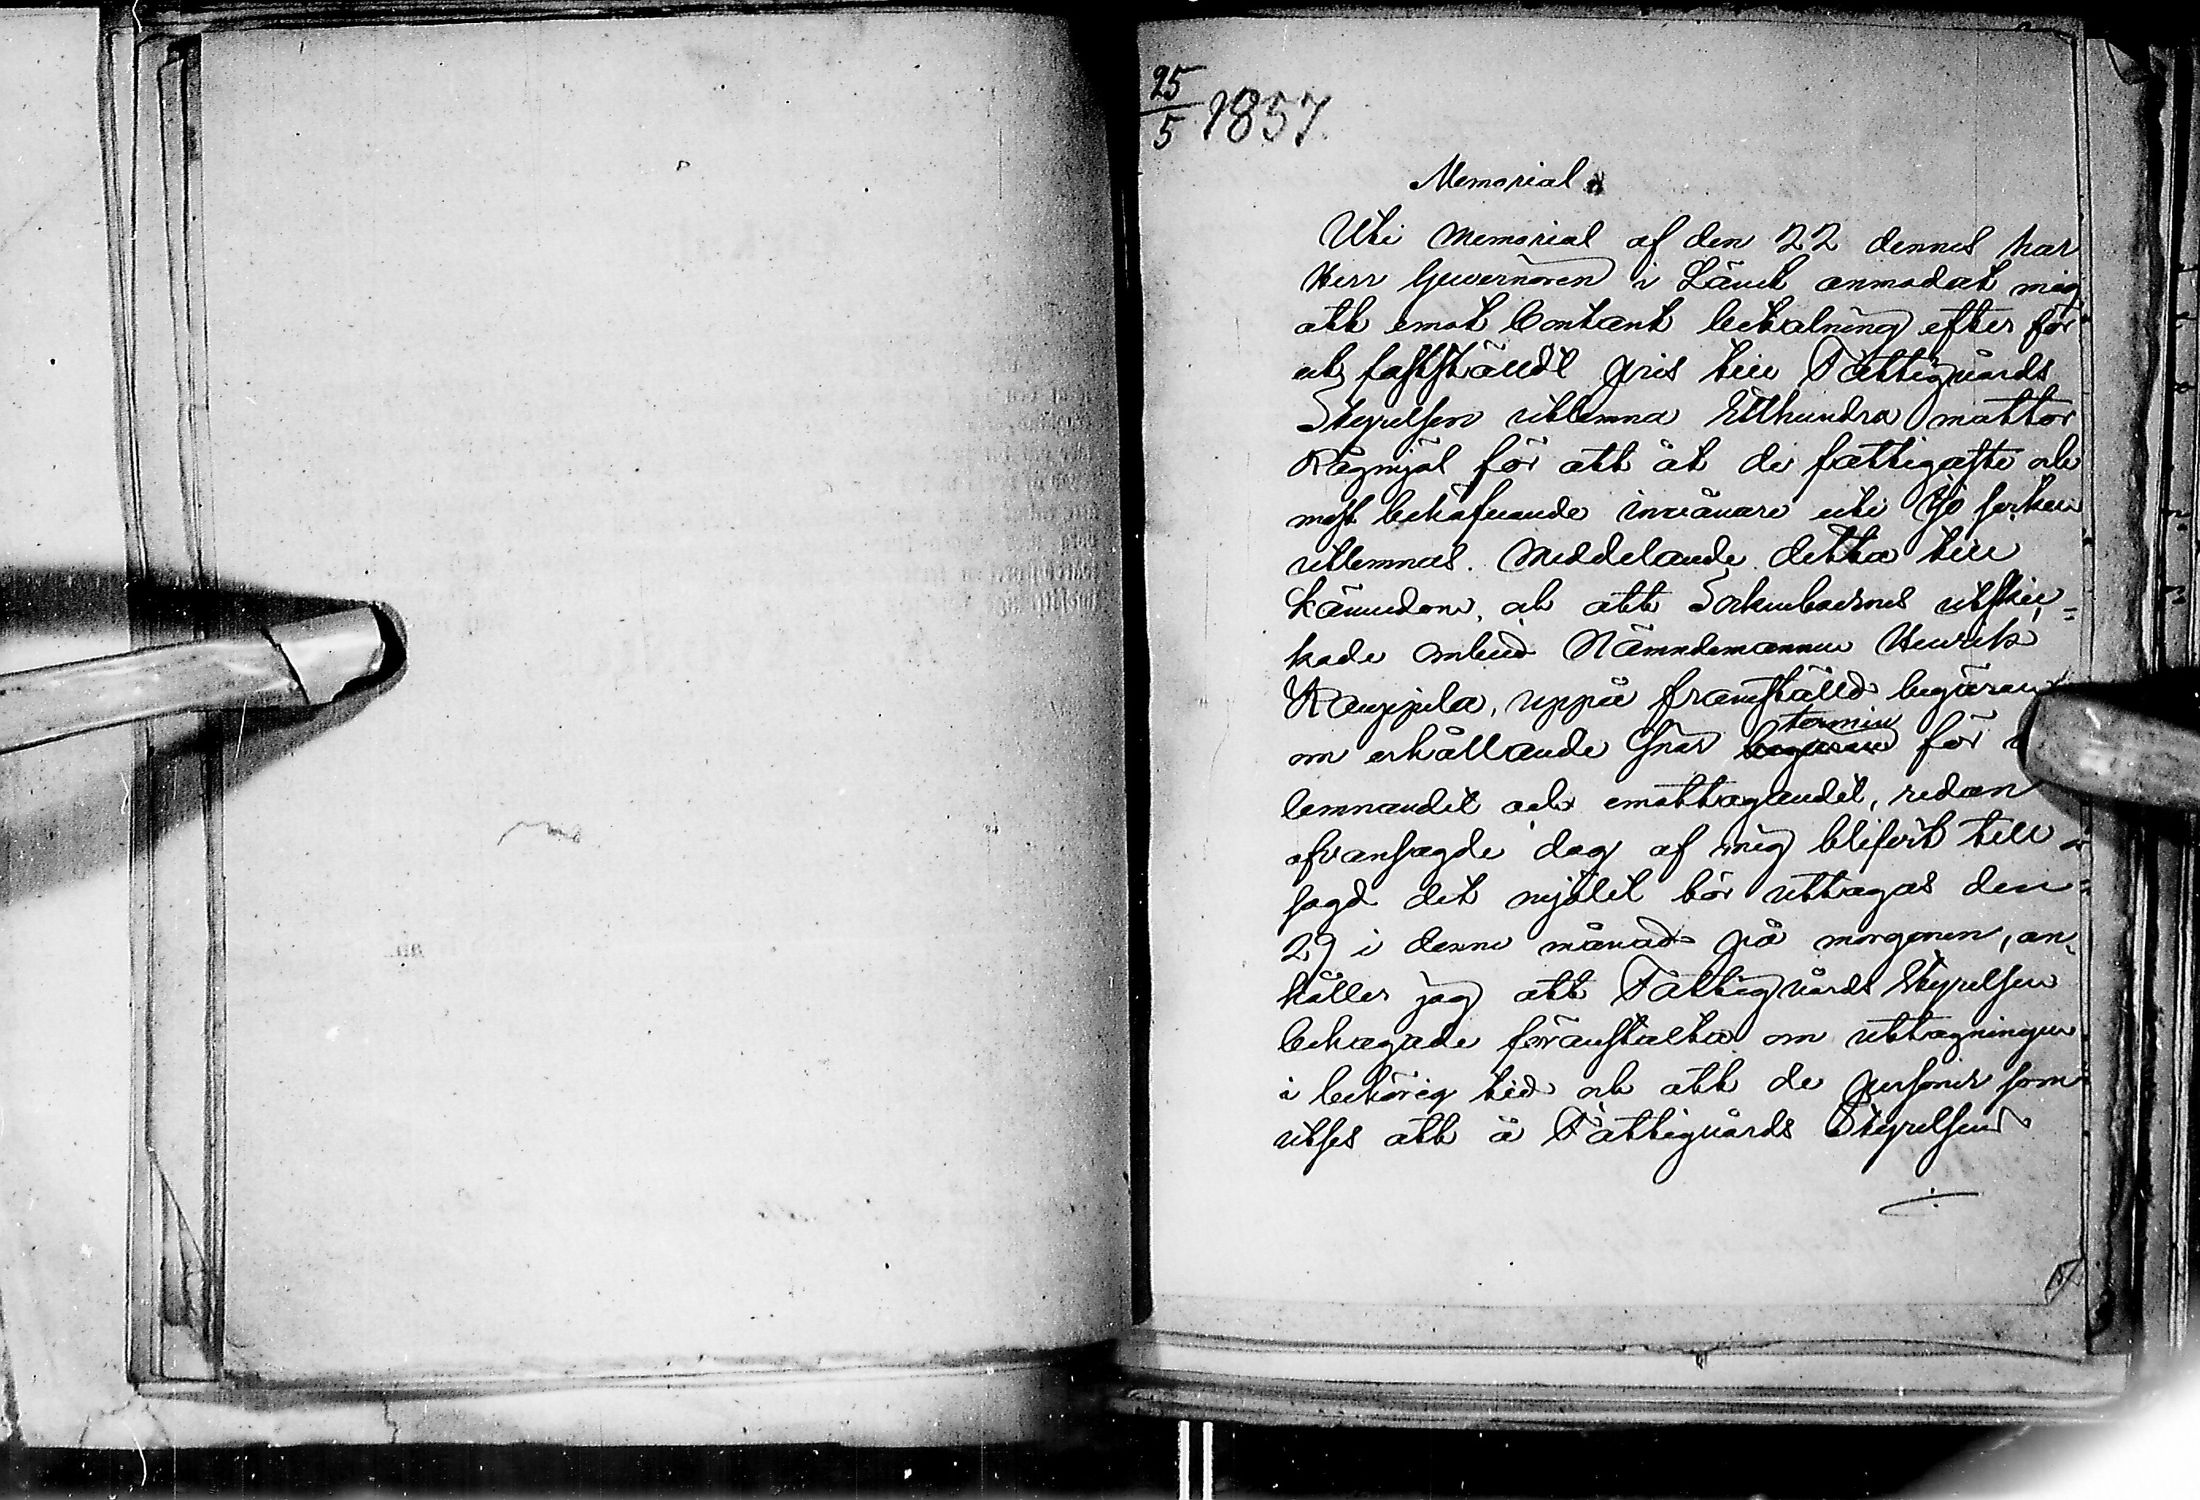 25/5 1857.
Memorial
Uti Memorial af den 22 dennes har
Herr Guvernören i Länet anmodat mig
att emot Contant betalning efter för
ut fastställdt pris till Fattigvårds
Styrelsen utlemna Etthundra mattor
Rågmjöl för att åt de fattigaste och
mest behöfvande invånare uti Ijo socken
utlemnas. Meddelande detta till
kännedom, och att Sockneboernes utskic,=
kade ombud Nämndemannen Henrik
Kauppila, uppå framställd begäran
om erhållande snar termin för
lemnandet och emottagandet, redan
ofvansagde dag af mig blifvit till
sagd det mjölet bör uttagas den
29 i denne månad på morgonen, an,
håller jag att Fattigvårds Styrelsen
behagade föranstalta om uttagningen
i behörig tid och att de personer som
utses att å Fattigvårds Styrelsens